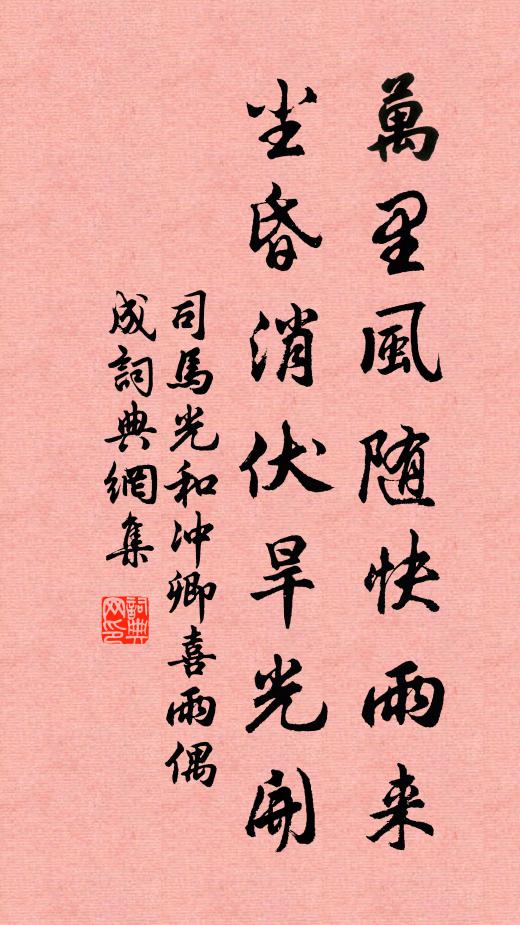 萬里風随快雨来
尘昏消伏旱光開
司馬光和冲卿喜雨偶
成詞典網集
詞典网印